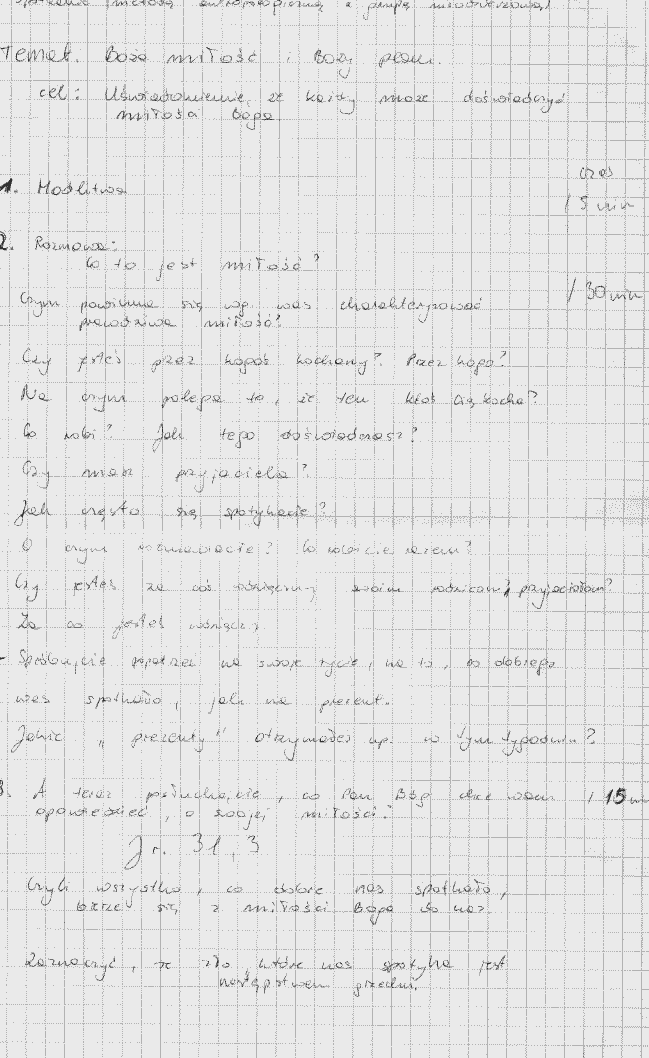 Spotkanie metodą antropologiczną z grupą
Temat. Boża miłość i Boży plan.
cel: Uświadomienie, że każdy może doświadczyć
miłości Boga
czas
1. Modlitwa
/ 5 min
2. Rozmowa:
Co to jest miłość?
/ 30 min
Czym powinna się wg. was charakteryzować
prawdziwa miłość?
Czy jesteś przez kogoś kochany? Przez kogo?
Na czym polega to, że ten ktoś Cię kocha?
Co robi? Jak tego doświadczasz?
Czy masz przyjaciela?
Jak często się spotykacie?
O czym rozmawiacie? Co robicie razem?
Czy jesteś za coś wdzięczny swoim rodzicom, przyjaciołom?
Za co jesteś wdzięczny
- Spróbujcie popatrzeć na swoje życie, na to, co dobrego
was spotkało, jak na prezent.
Jakie „prezenty" otrzymałeś np. w tym tygodniu?
3. A teraz posłuchajcie, co Pan Bóg chce wam / 15 min
opowiedzieć, o swojej miłości:
Jr. 31, 3
Czyli wszystko, co dobre nas spotkało,
bierze się z miłości Boga do nas.
Zaznaczyć, że zło, które nas spotyka jest
następstwem grzechu.